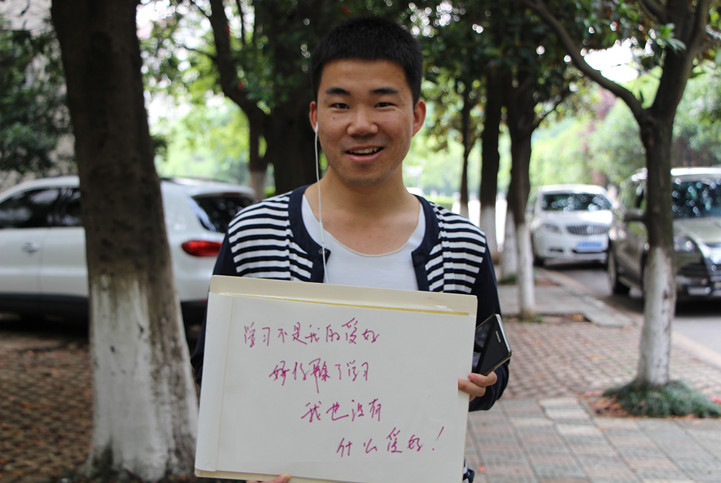 学习不是我的爱好
好像除了学习
我也没有
什么爱好！